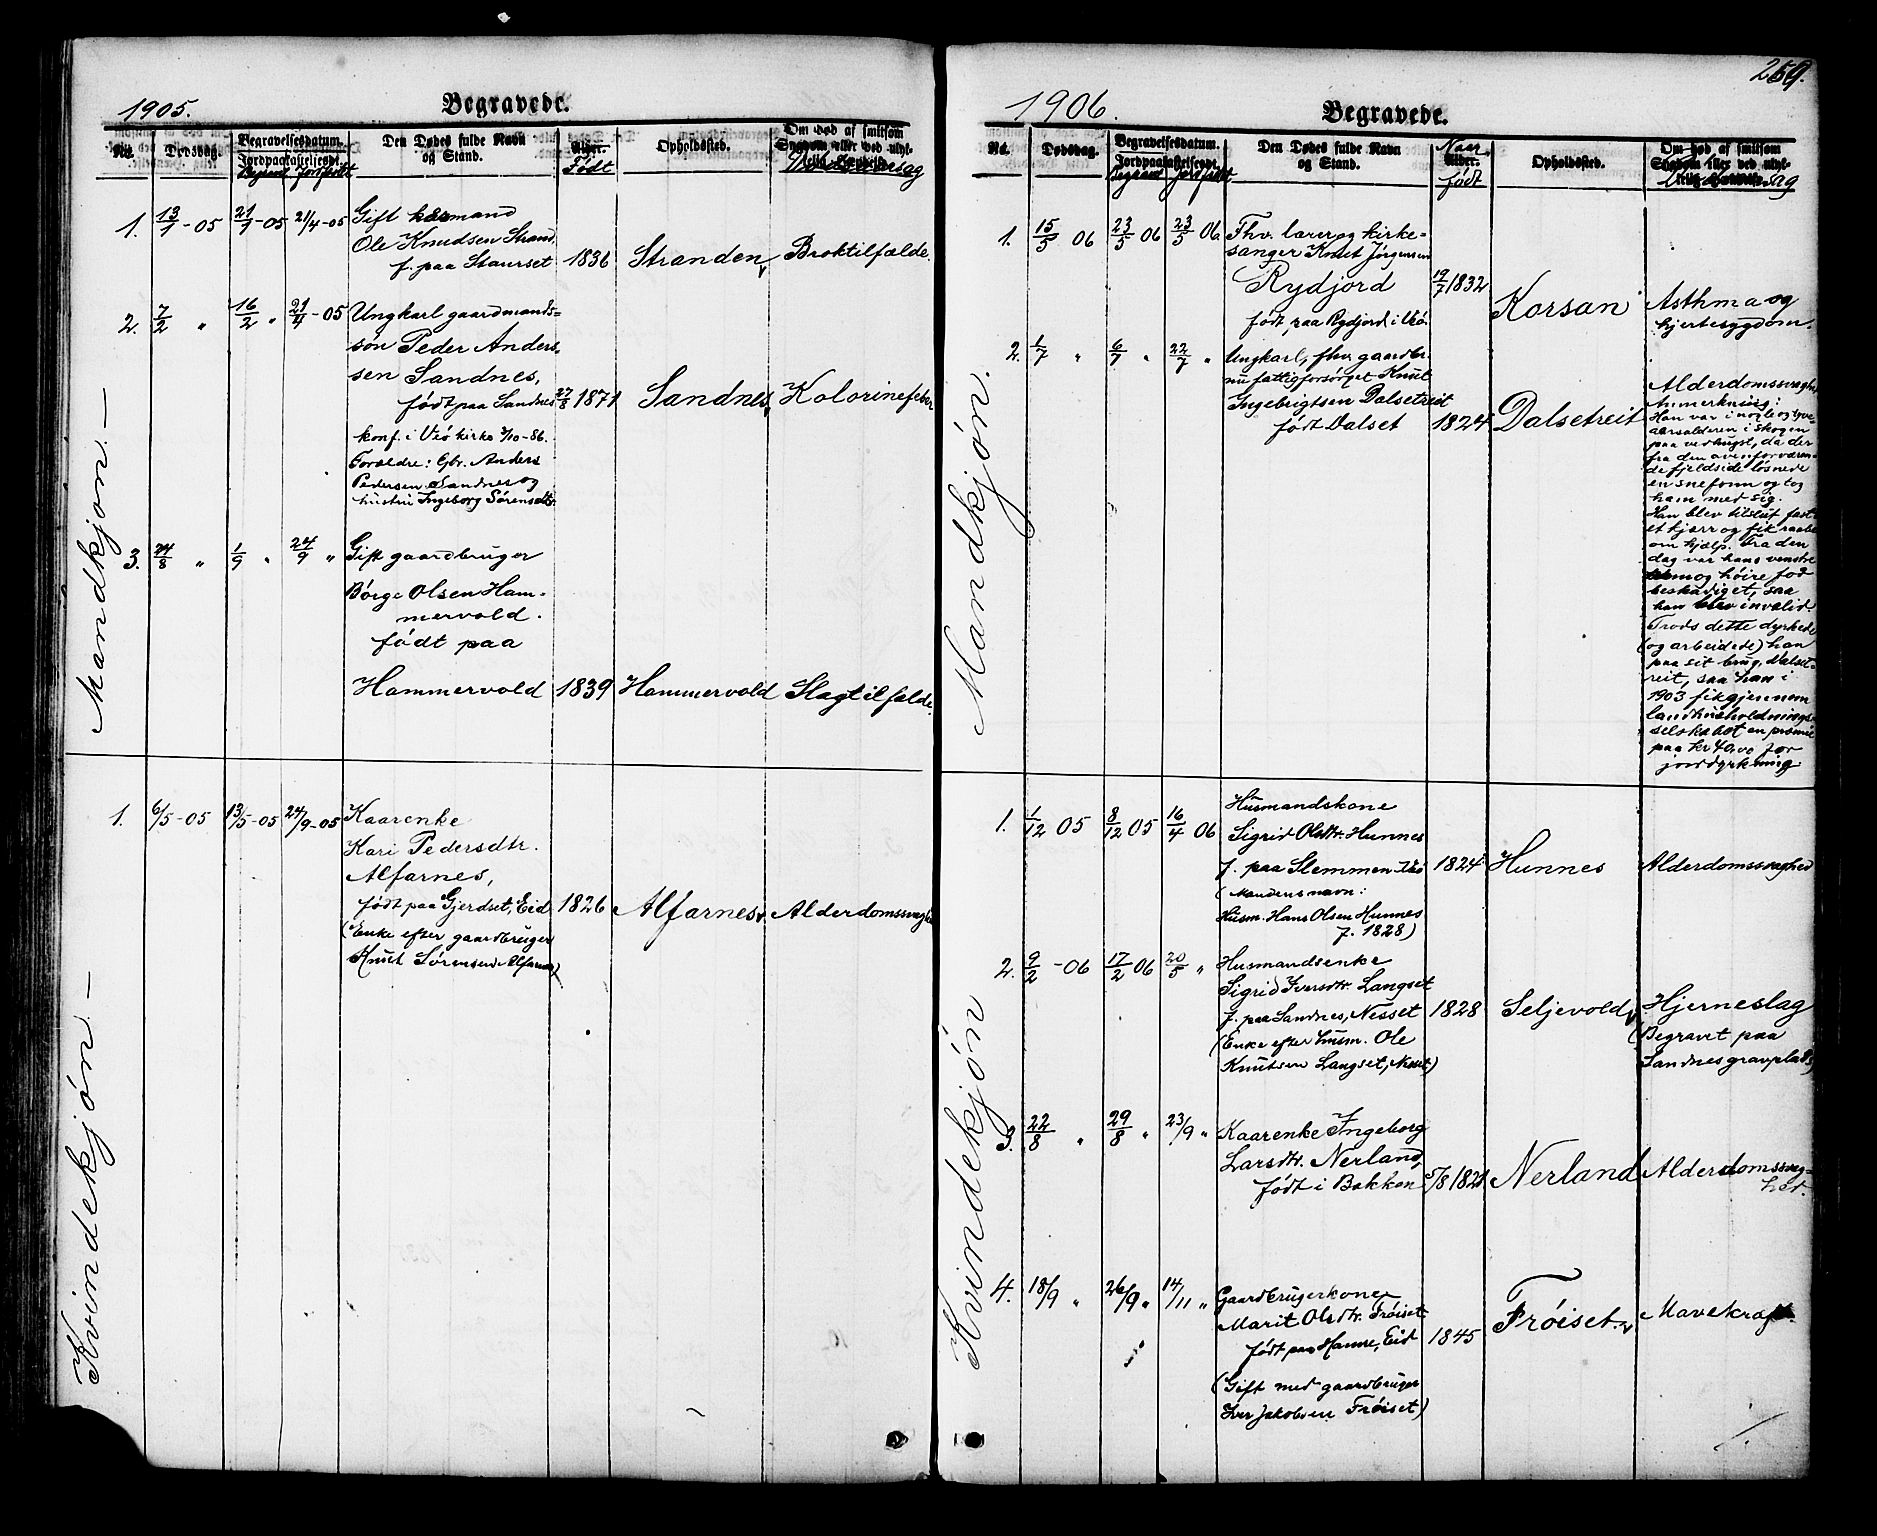 1905.
Begravede.
No.
Dødsdag.
Begravelsesdatum.
Jordpaakastelsesdt.
Begravet Jordfæstet
Den Dødes fulde Navn
og Stand.
Alder.
Født
Opholdssted.
Om død af smitsom
Sygdom eller ved ulyk-
Dødsaarsag
Mandkjøn. —
1. 13/1 - 05 21/1 - 05 21/4 - 05
Gift
Ole Knudsen Strand
f. paa Staurset 1836 Stranden Broktilfælde.
2. 7/2 " 16/2 " 24/4 - 05
Ungkarl gaardmands-
søn Peder Anders-
sen Sandnes,
født paa Sandnes 27/8 1871 Sandnes Kolorinefeber
konf. i Veø kirke 3/10 - 86.
Forældre: Gbr. Anders
Pedersen Sandnes og
hustru Ingeborg Sørensdtr.
3. 24/8 " 1/9 " 24/9 "
Gift gaardbruger
Børge Olsen Ham-
mervold.
født paa
Hammervold 1839 Hammervold Slagtilfælde.
Kvindekjøn. —
1. 6/5 - 05 13/5 - 05 24/9 - 05
Kaarenke
Kari Pedersdtr.
Alfarnes,
født paa Gjerdset, Eid 1826 Alfarnes Alderdomssvaghed
(Enke efter gaardbruger
Knut Sørensen Alfarnes)
259.
1906.
Begravede.
No.
Dødsdag.
Begravelsesdatum.
Jordpaakastelsesdt.
Begravet Jordfæstet
Den Dødes fulde Navn
og Stand.
Naar
Alder.
født
Opholdssted.
Om død af smitsom
Sygdom eller ved ulyk-
Dødsaarsag
Mandkjøn.
1. 15/5 06 23/5 06 23/5 06
Fhv. lærer og kirke-
sanger Knut Jørgensen
Rydjord 19/7 1832 Korsan Asthma og
født paa Rydjord i Veø. hjertesygdom.
2. 1/7 " 6/7 " 22/7 "
Ungkarl, fhv. gaardbr.
nu fattigforsørget Knut
Ingebrigtsen Dalsetreit
født Dalset 1824 Dalsetreit
Alderdomssvaghed
Anmerkning:
Han var i nogle og tyve-
aarsalderen i skogen
paa vedhugst, da der
fra den ovenforværen-
de fjeldside løsnede
en snefonn og tog
ham med sig.
Han blev tilslut fast i
et kjærr og fik raabe
om hjælp. Fra den
dag var hans venstre
arm og høire fod
beskadiget, saa
han blev invalid.
Trods dette dyrkede
(og arbeidede) han
paa sit brug, Dalset-
reit, saa han i
1903 fik gjennem
landhusholdnings-
selskabet en præmie
paa kr 40,00 for
jorddyrkning
Kvindekjøn
1. 1/12 05 8/12 05 16/4 06
Husmandskone
Sigrid Olsdtr. Hunnes
f. paa Slemmen Veø 1824 Hunnes Alderdomssvaghed
(Mandens navn:
Husm. Hans Olsen Hunnes
f. 1828)
2. 9/2 - 06 17/2 06 20/5 "
Husmandsenke
Sigrid Iversdtr. Langset
f. paa Sandnes, Nesset 1828 Seljevold Hjerneslag
(Enke efter husm. Ole (Begravet paa
Knutsen Langset, Nesset) Sandnes gravplads)
3. 22/8 " 29/8 " 23/9 "
Kaarenke Ingeborg
Larsdtr. Nerland,
født i Bakken 5/8 1821 Nerland Alderdomssvag-
hed.
4. 18/9 " 26/9 " 14/11 "
Gaardbrugerkone
Marit Olsdtr. Frøiset
født paa Hamre, Eid 1845 Frøiset. Mavekræft.
(Gift med gaardbruger
Iver Jakobsen Frøiset)